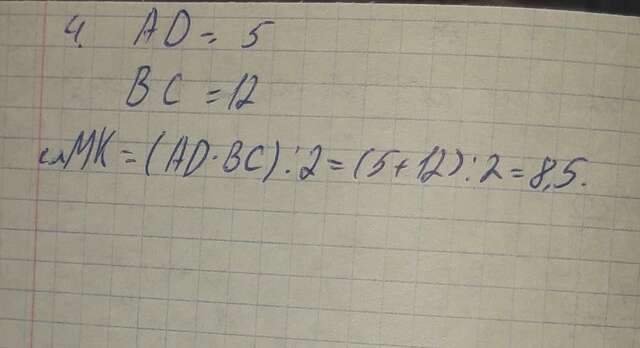 4. AD = 5
BC = 12
MK = (AD · BC) : 2 = (5 + 12) : 2 = 8,5.